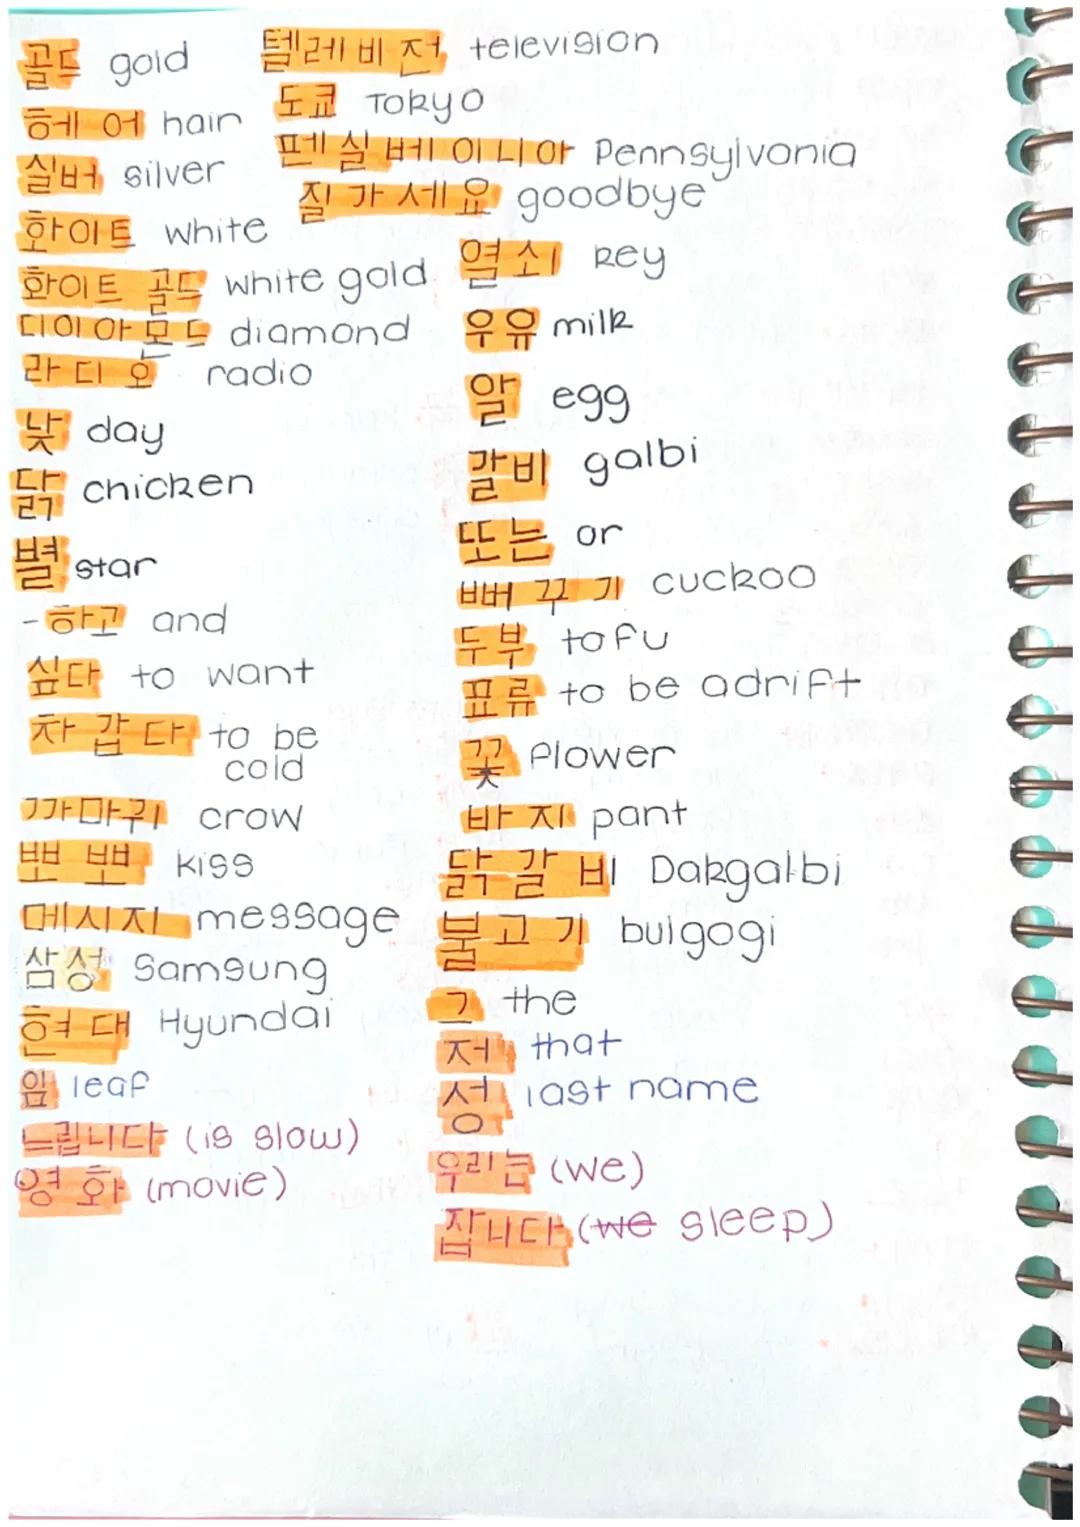 골드 gold
헤어 hair
실버 silver
화이트 white
화이트 골드 white gold
다이아몬드 diamond
라디오 radio
낮 day
닭 chicken
별 star
-하고 and
싶다 to want
차갑다 to be
cold
까마귀 crow
뽀뽀 kiss
메시지 message
삼성 Samsung
현대 Hyundai
잎 leaf
느립니다 (is slow)
영화 (movie)
텔레비전 television
도쿄 Tokyo
펜실베이니아 Pennsylvania
잘가세요 goodbye
열쇠 key
우유 milk
알 egg
갈비 galbi
또는 or
뻐꾸기 cuckoo
두부 tofu
표류 to be adrift
꽃 flower
바지 pant
닭갈비 Dakgalbi
불고기 bulgogi
그 the
저 that
성 last name
우리는 (we)
잡니다 (we sleep)